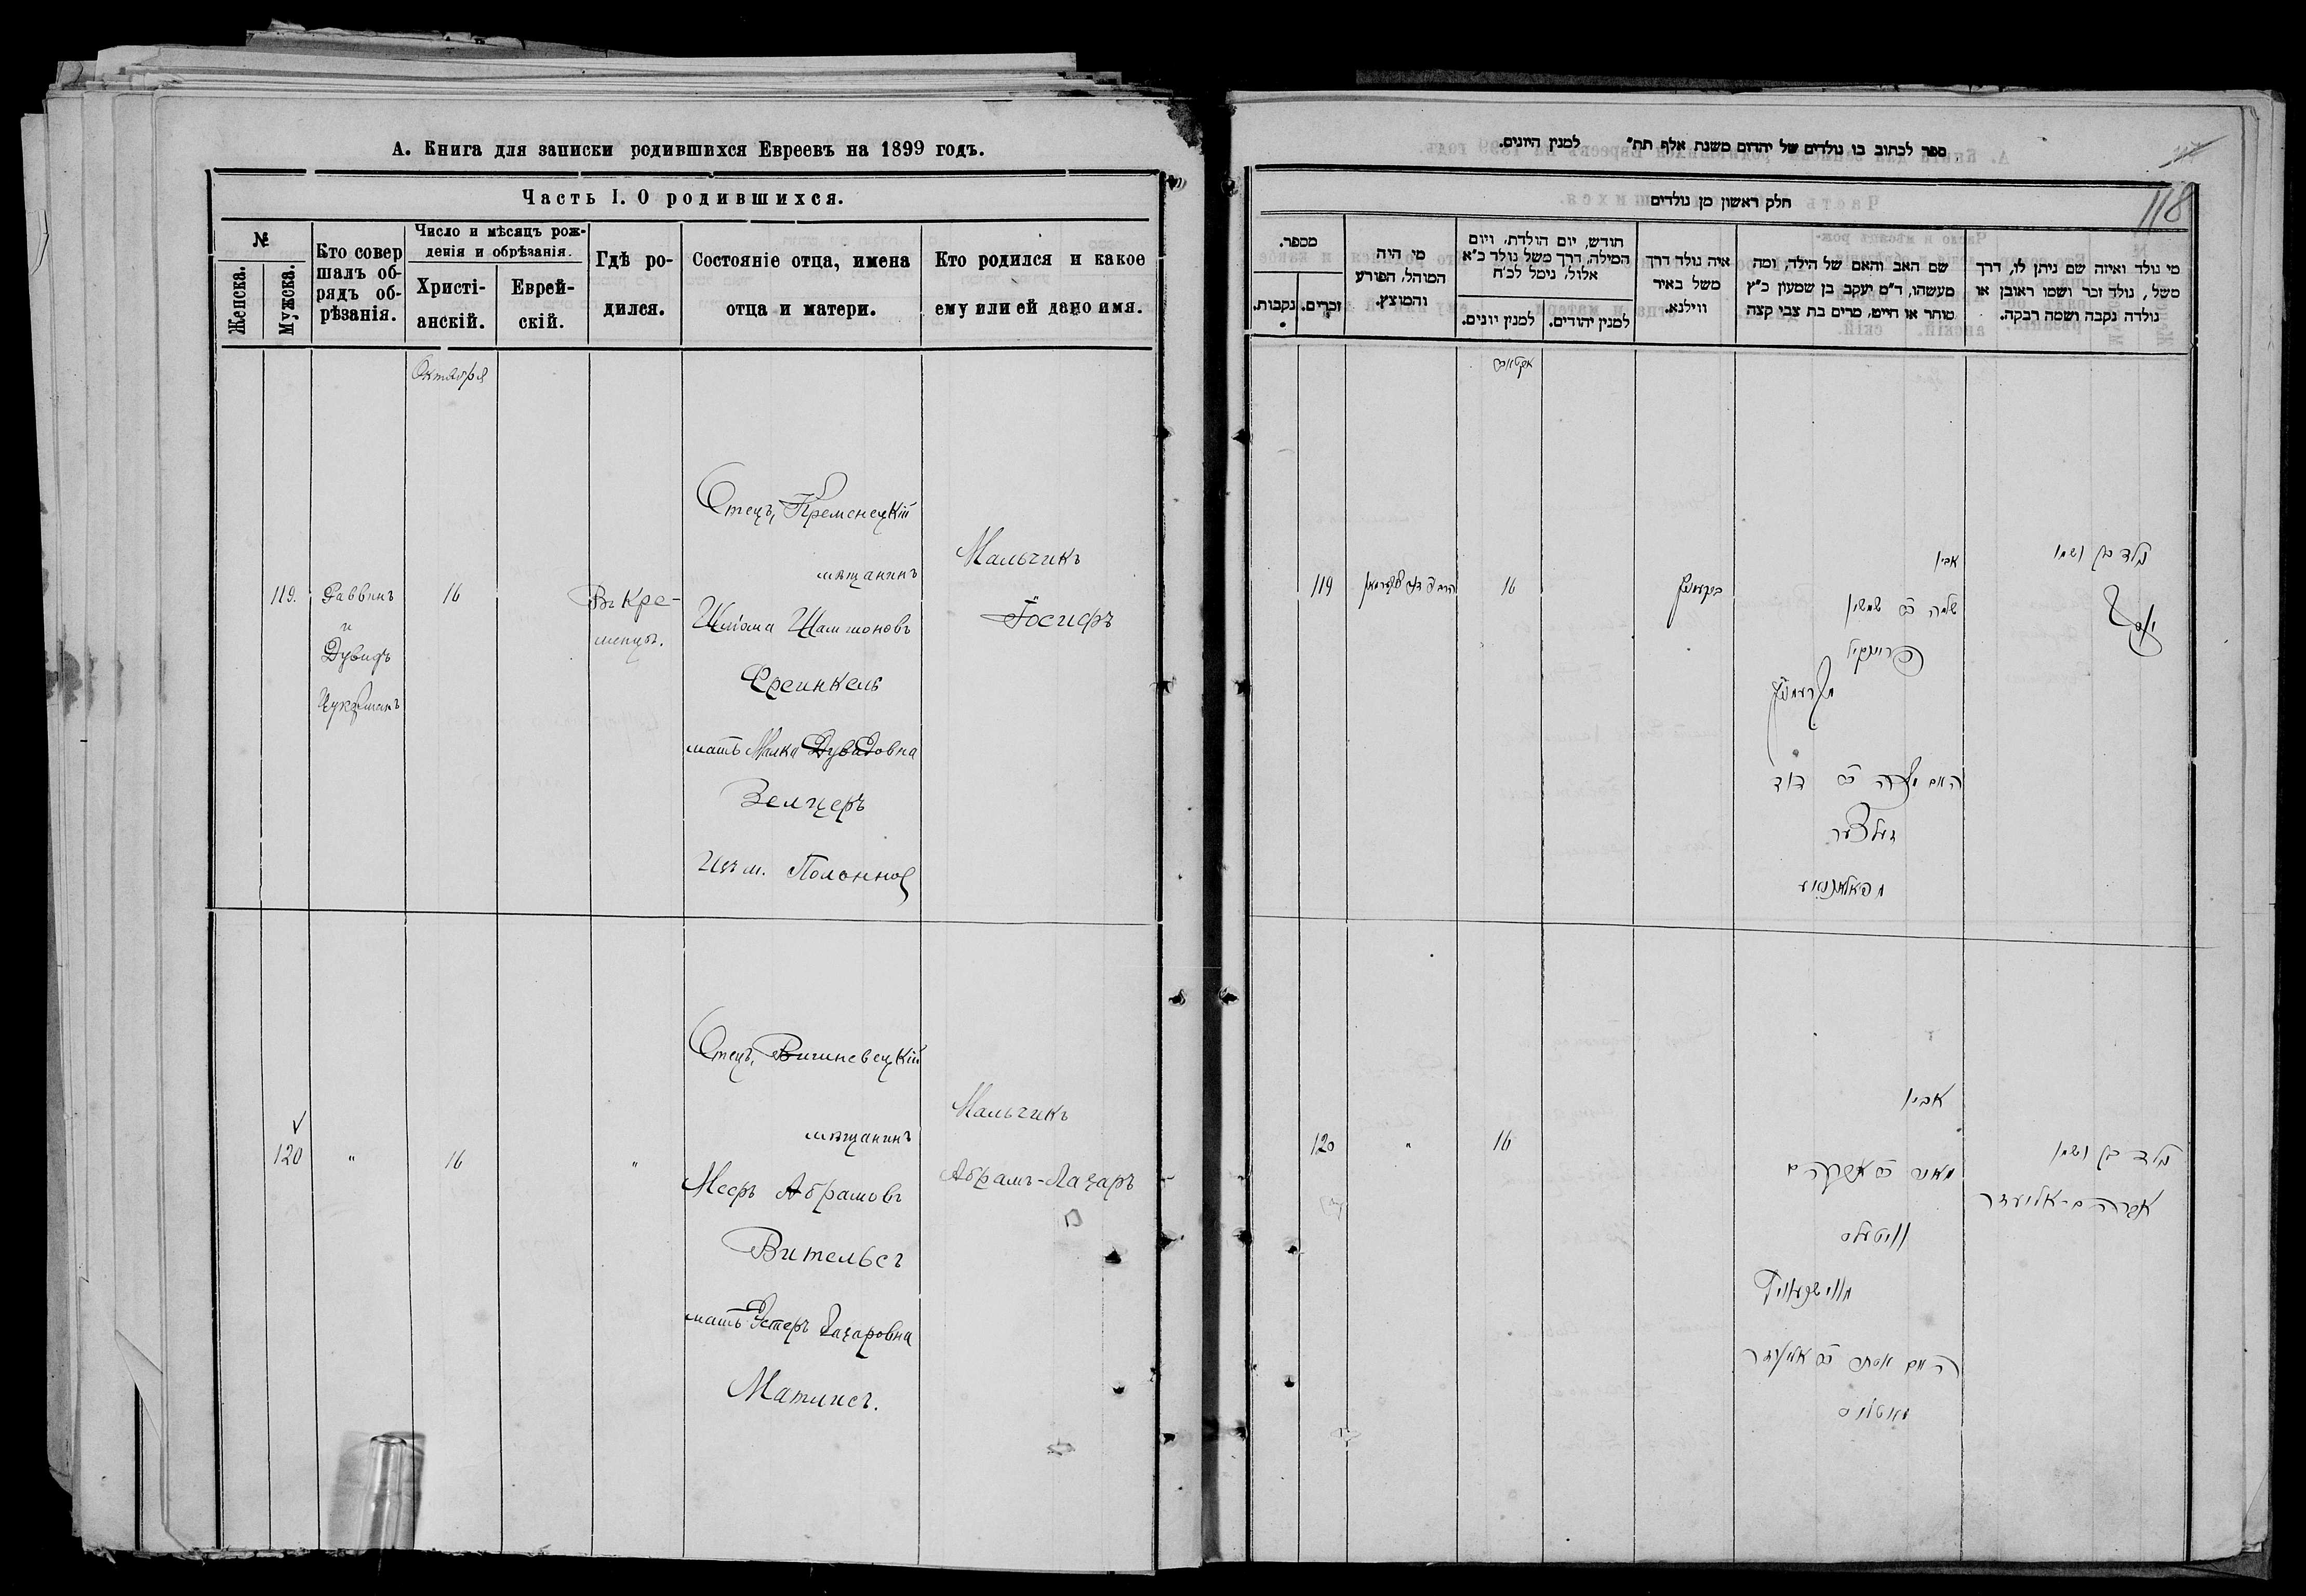 А. Книга для записки родившихся Евреевъ на 1899 годъ.
Часть I. О родившихся.
№
Женска.
Мужска.
Кто совер
шалъ об-
рядъ об-
рѣзанія.
Число и мѣсяцъ рож-
денія и обрѣзанія.
Христі-
анскій.
Еврей-
скій.
Гдѣ ро-
дился.
Состояніе отца, имена
отца и матери.
Кто родился и какое
ему или ей дано имя.
Октября
119.
Раввинъ
и
Дувидъ
Цукерманъ
16
Въ Кре-
менцѣ.
Отецъ, Кременецкій
мѣщанинъ
Шлiома Шамшоновъ
Френкель
мать Малка Дувидовна
Зельцеръ
Изъ м. Полонноe
Мальчикъ
Іосифъ
120
"
16
"
Отецъ, Вишневецкій
мѣщанинъ
Мееръ Абрамовъ
Вительсъ
мать Эстеръ Лазаровна
Матисъ.
Мальчикъ
Абрамъ-Лазаръ
ספר לכתוב בו נולדים של יהדום משנת אלף תת״ למנין היונים.
118
חלק ראשון מן נולדים
מספר.
זכרים.
נקבות.
מי היה
המוהל, הפורע
והמוצץ.
חודש, יום הולדת, ויום
המילה, דרך משל נולד כ״א
אלול, נימל לכ״ח
למנין יונים.
למנין יהודים.
איה נולד דרך
משל באיר
ווילנא.
שם האב והאם של הילד, ומה
מעשהו, ד״מ יעקב בן שמעון כ״ץ
סוחר או חייט, מרים בת צבי קצה
מי נולד ואיזה שם ניתן לו, דרך
משל, נולד זכר ושמו ראובן או
נולדה נקבה ושמה רבקה.
אקטאבר
119
16
בקרעמניץ
אביו
שלמה ב״ר שמשון
פרענקיל
מקרעמניץ
האם מלכה ב״ר דוד
זעלצער
מפאלאנאע
נולד בן ושמו
יוסף
120
"
16
אביו
מאיר ב״ר אברהם
וויטעלס
מווישנעוויץ
האם אסתר ב״ר אליעזר
מאטיס
נולד בן ושמו
אברהם-אליעזר